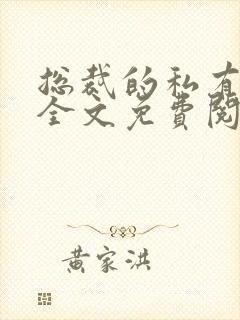 总裁的私有
全文免費阅
黄家洪